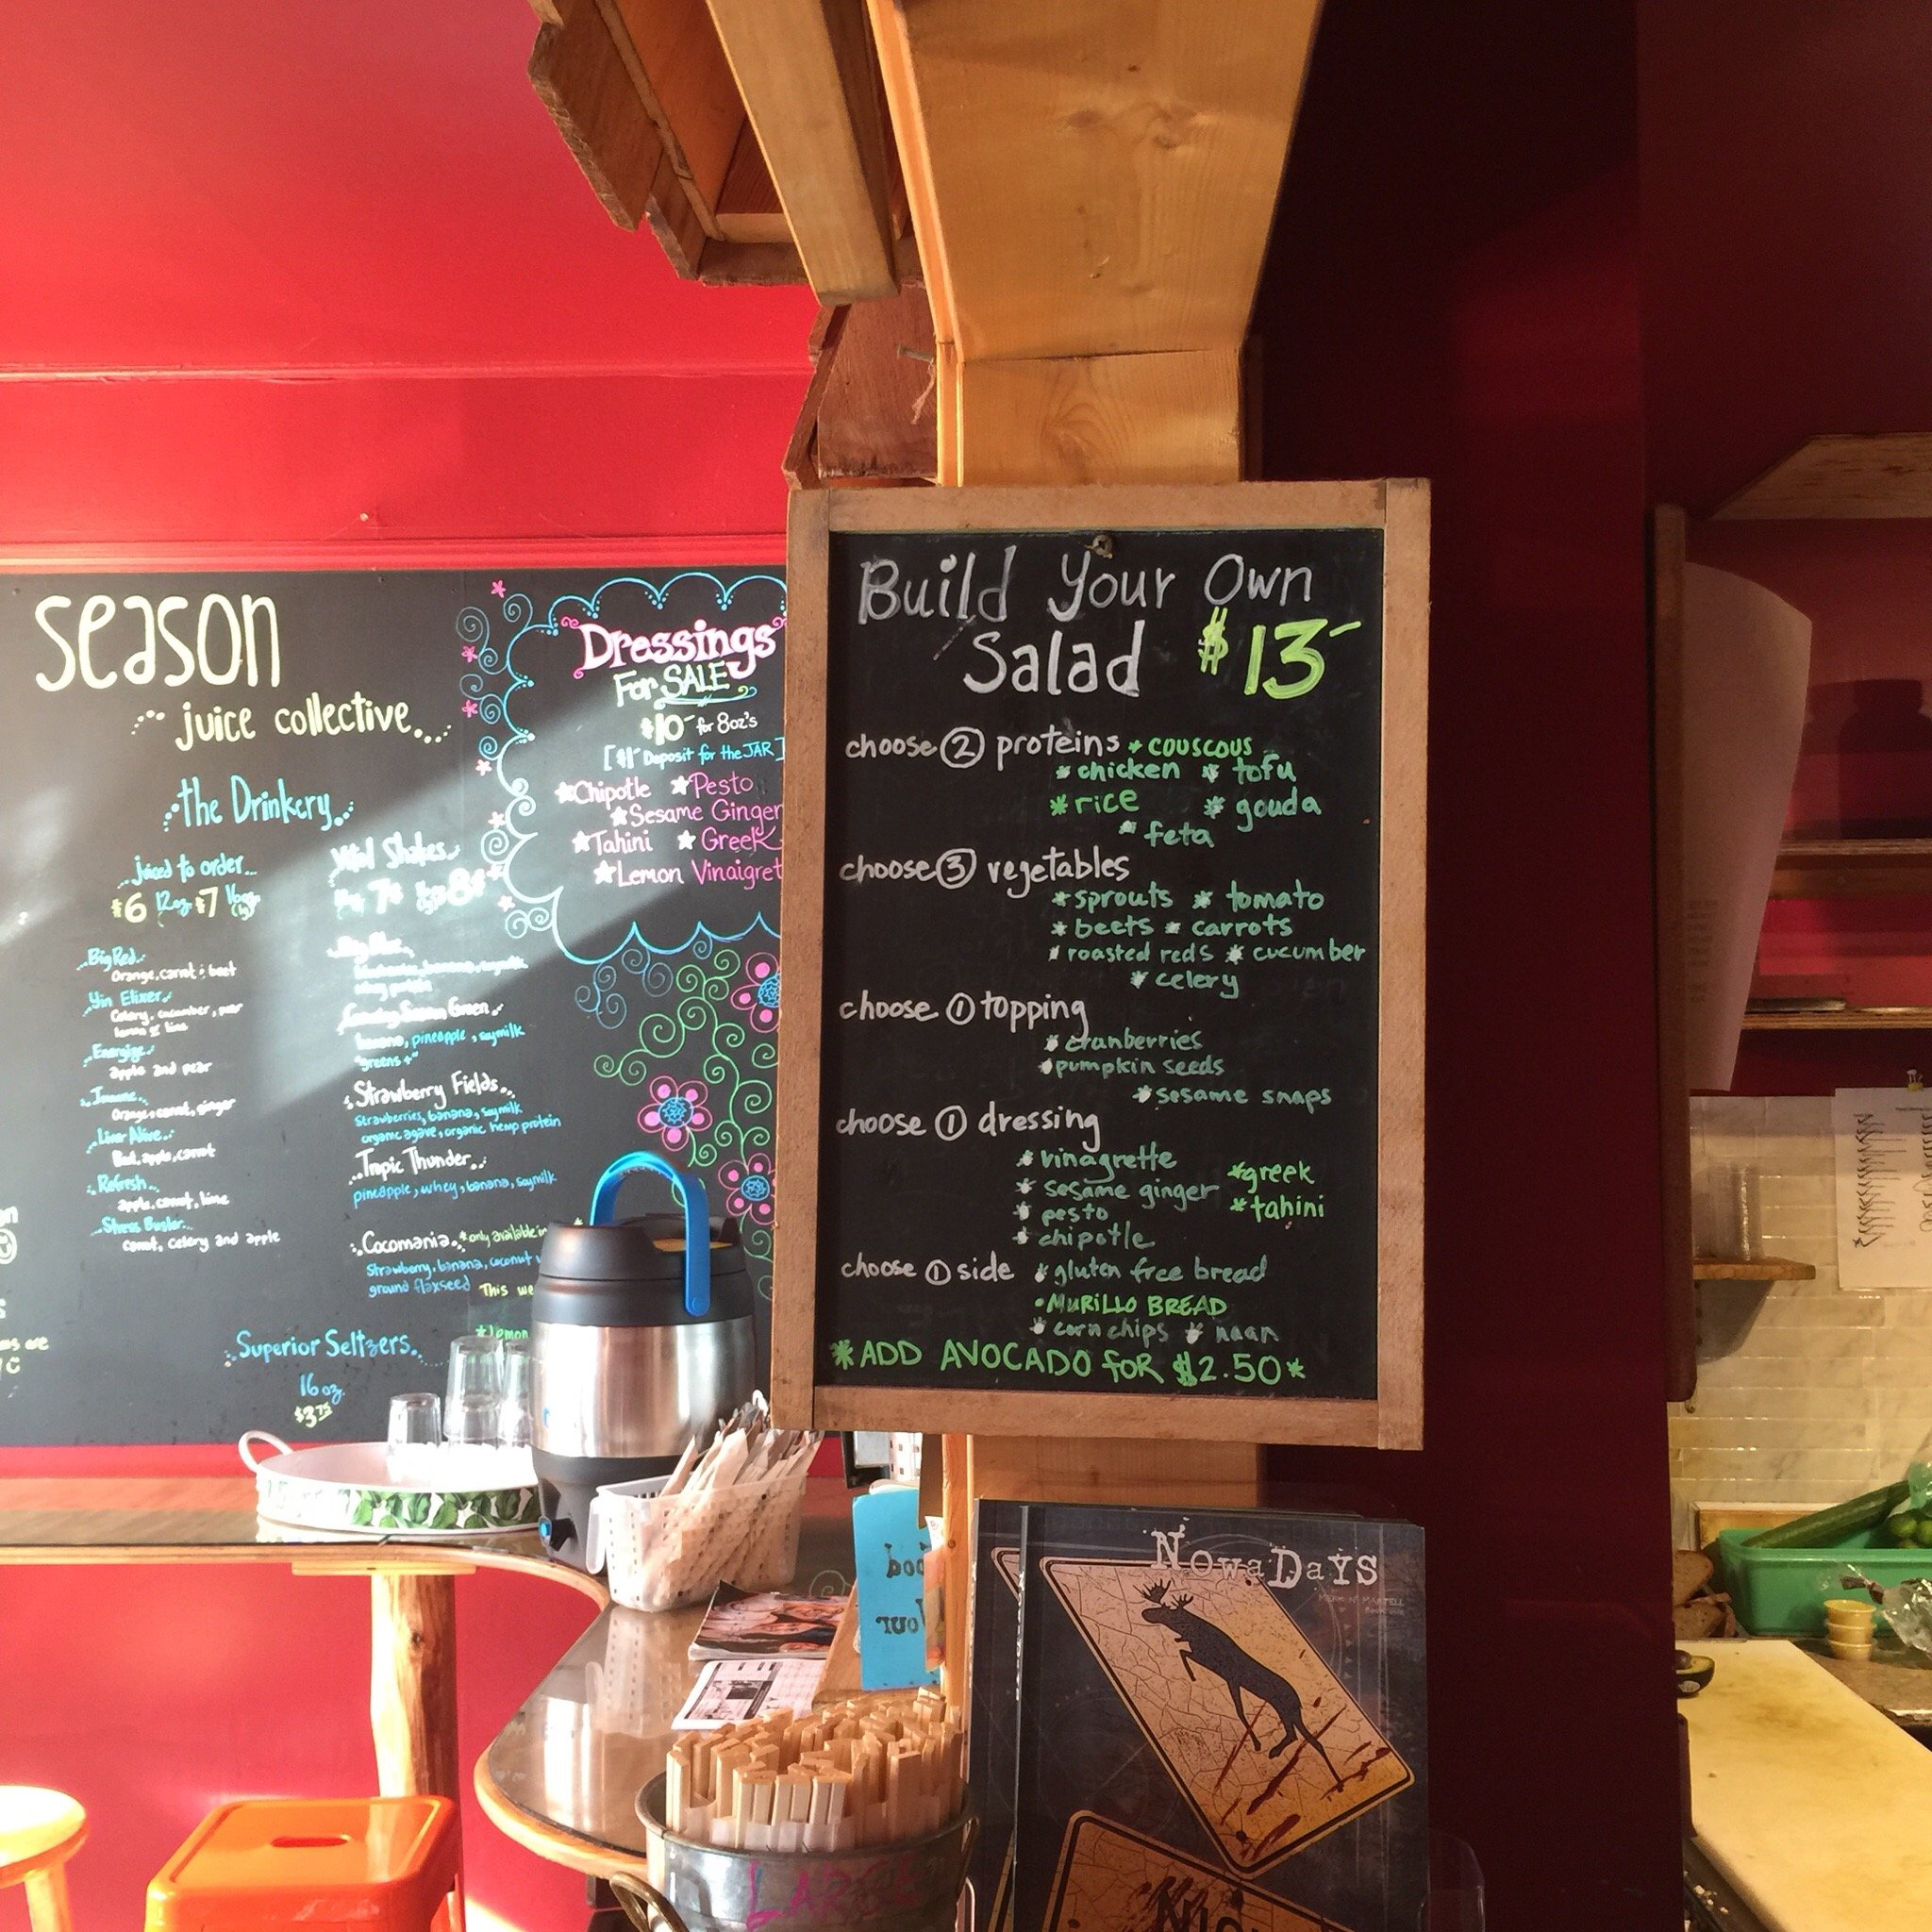 season
juice collective...
the Drinkery
juiced to order...
$6 12oz. $7 16oz.
Big Red
Orange, carrot & beet
Yin Elixer
Celery, cucumber, pear
lemon & lime
Energize
apple and pear
Immune
Orange, carrot, ginger
Liver Alive
Beet, apple, carrot
Refresh
apple, carrot, lime
Stress Buster
carrot, celery and apple
Vital Shakes
banana, pineapple, soymilk
"greens +"
Strawberry Fields
Strawberries, banana, soymilk
organic agave, organic hemp protein
Tropic Thunder
pineapple, whey, banana, soymilk
Cocomania *only available in
Strawberry, banana, coconut
ground flaxseed
This we
*lemon
Superior Seltzers
16 oz.
$3.75
Dressings
For SALE
$10- for 8oz's
[$1- Deposit for the JAR]
*Chipotle *Pesto
*Sesame Ginger
*Tahini *Greek
*Lemon Vinaigret
Build Your Own
Salad $13-
choose 2 proteins * couscous
* chicken * tofu
* rice * gouda
* feta
choose 3 vegetables
* sprouts * tomato
* beets * carrots
* roasted reds * cucumber
* celery
choose 1 topping
* cranberries
* pumpkin seeds
* sesame snaps
choose 1 dressing
* vinagrette
* greek
* sesame ginger
* tahini
* pesto
* chipotle
choose 1 side * gluten free bread
• MURILLO BREAD
* corn chips * naan
*ADD AVOCADO for $2.50*
NowaDaYS
LARGE